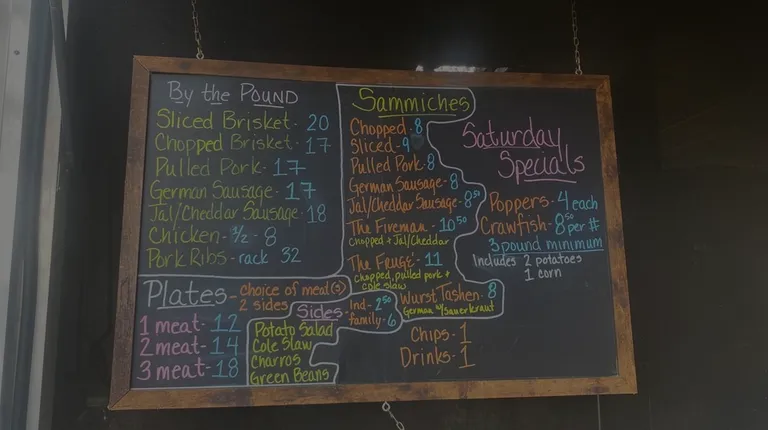 By the Pound
Sliced Brisket - 20
Chopped Brisket - 17
Pulled Pork - 17
German Sausage - 17
Jal/Cheddar Sausage - 18
Chicken - 1/2 - 8
Pork Ribs - rack 32
Plates - choice of meat(s)
2 sides
1 meat - 12
2 meat - 14
3 meat - 18
Sides
Ind - 2.50
family - 6
Potato Salad
Cole Slaw
Charros
Green Beans
Sammiches
Chopped - 8
Sliced - 9
Pulled Pork - 8
German Sausage - 8
Jal/Cheddar Sausage - 8.50
The Fireman - 10.50
chopped + Jal/cheddar
The Frugé - 11
chopped, pulled pork +
cole slaw
Wurst Tashen - 8
German w/sauerkraut
Chips - 1
Drinks - 1
Saturday
Specials
Poppers - 4 each
Crawfish - 8.50 per #
3 pound minimum
Includes 2 potatoes
1 corn